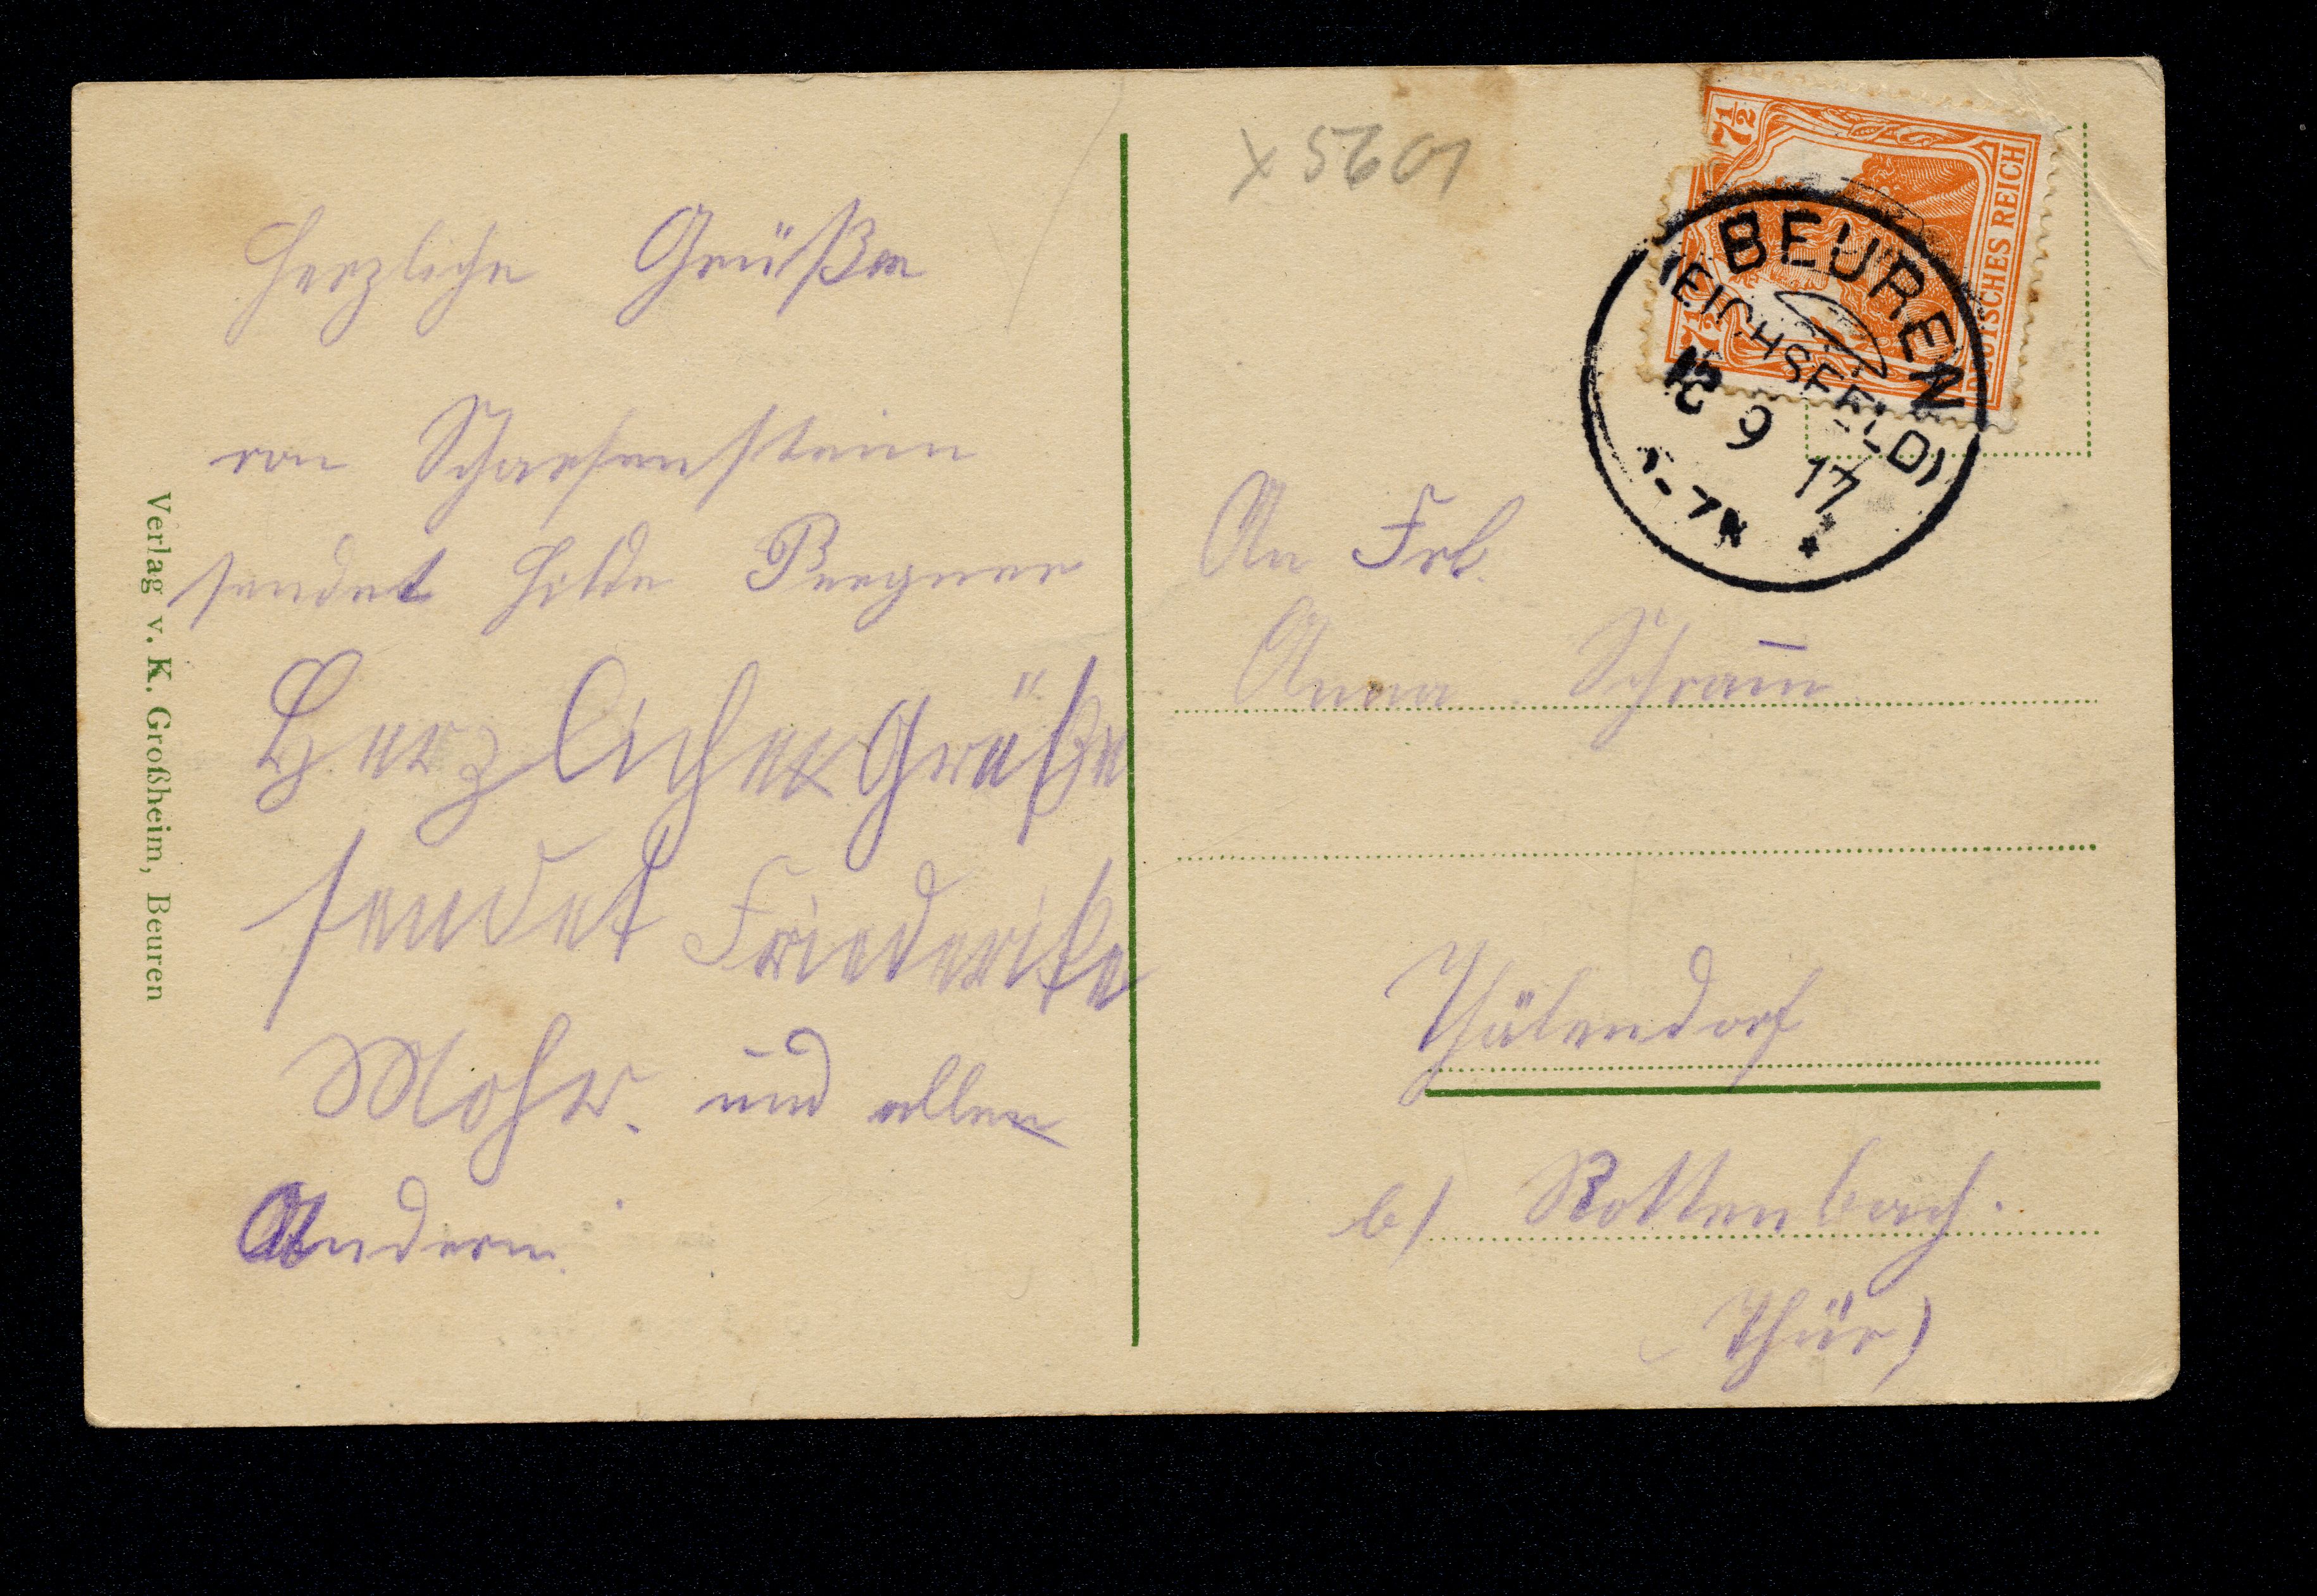 Herzliche Grüße
von Scharfenstein
sendet Hilde Bergner
Herzliche Grüße
sendet Friederike
Mohr. und allen
Andern.
Verlag v. K. Großheim, Beuren
x 5601
7½
7½
DEUTSCHES REICH
BEUREN
(EICHSFELD)
9 17
An Frl.
Anna Schram̅
Thälendorf
b/ Rottenbach.
Thür)